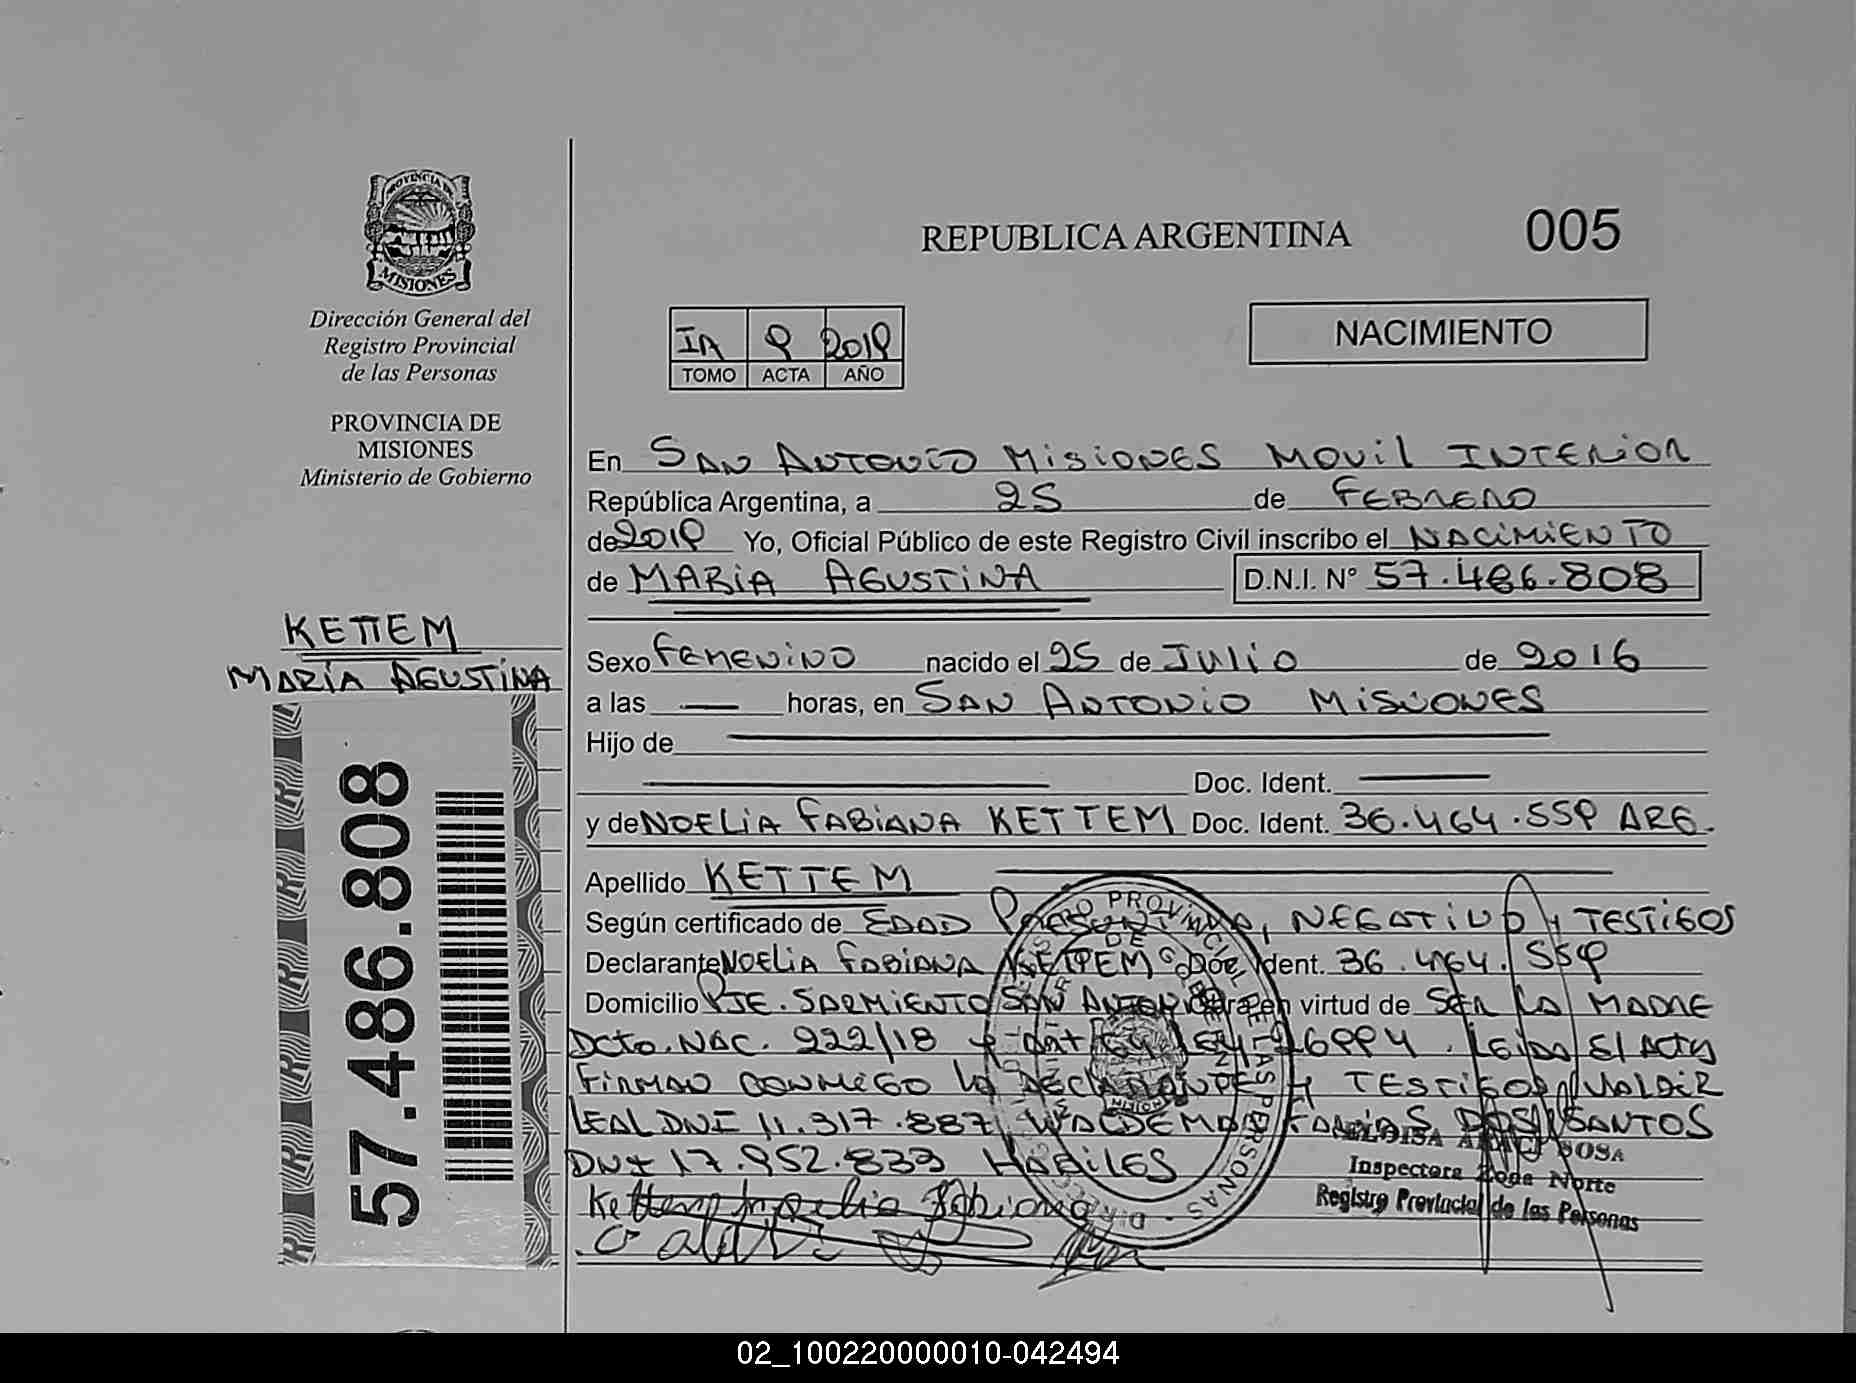 PROVINCIA DE
MISIONES
Dirección General del
Registro Provincial
de las Personas
PROVINCIA DE
MISIONES
Ministerio de Gobierno
KETTEM
MARÍA AGUSTINA
57.486.808
REPUBLICA ARGENTINA
005
IA 9 2019
TOMO ACTA AÑO
NACIMIENTO
En SAN ANTONIO MISIONES MOVIL INTERIOR
República Argentina, a 25 de FEBRERO
de 2019 Yo, Oficial Público de este Registro Civil inscribo el NACIMIENTO
de MARIA AGUSTINA D.N.I. N° 57.486.808
Sexo FEMENINO nacido el 25 de JULIO de 2016
a las — horas, en SAN ANTONIO MISIONES
Hijo de
Doc. Ident.
y de NOELIA FABIANA KETTEM Doc. Ident. 36.464.559 ARG.
Apellido KETTEM
Según certificado de EDAD PRESUNTIVA, NEGATIVO y TESTIGOS
Declarante NOELIA FABIANA KETTEM Doc. Ident. 36.464.559
Domicilio PJE. SARMIENTO SAN ANTONIO en virtud de SER LA MADRE
DCTO. NAC. 222/18 y LEY 26994. LEIDA El ACTA
FIRMAN CONMIGO LA DECLARANTE y TESTIGOS VALDIR
LEAL DNI 11.317.887, WALDEMAR FARIAS DOS SANTOS
DNI 17.952.833 HABILES
Kettem Noelia Fabiana
ELOISA SOSA
Inspectora Zona Norte
Registro Provincial de las Personas
02_100220000010-042494